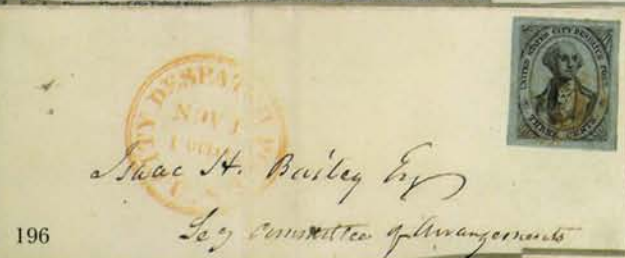 UNITED STATES CITY DESPATCH POST
THREE CENTS
CITY DESPATCH
NOV 1
Isaac H. Bailey Esq
Secy Committee of Arrangements
196